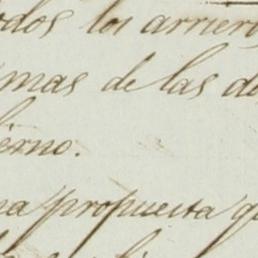 odos los arriero
mas de las d
ierno.
na propuesta q